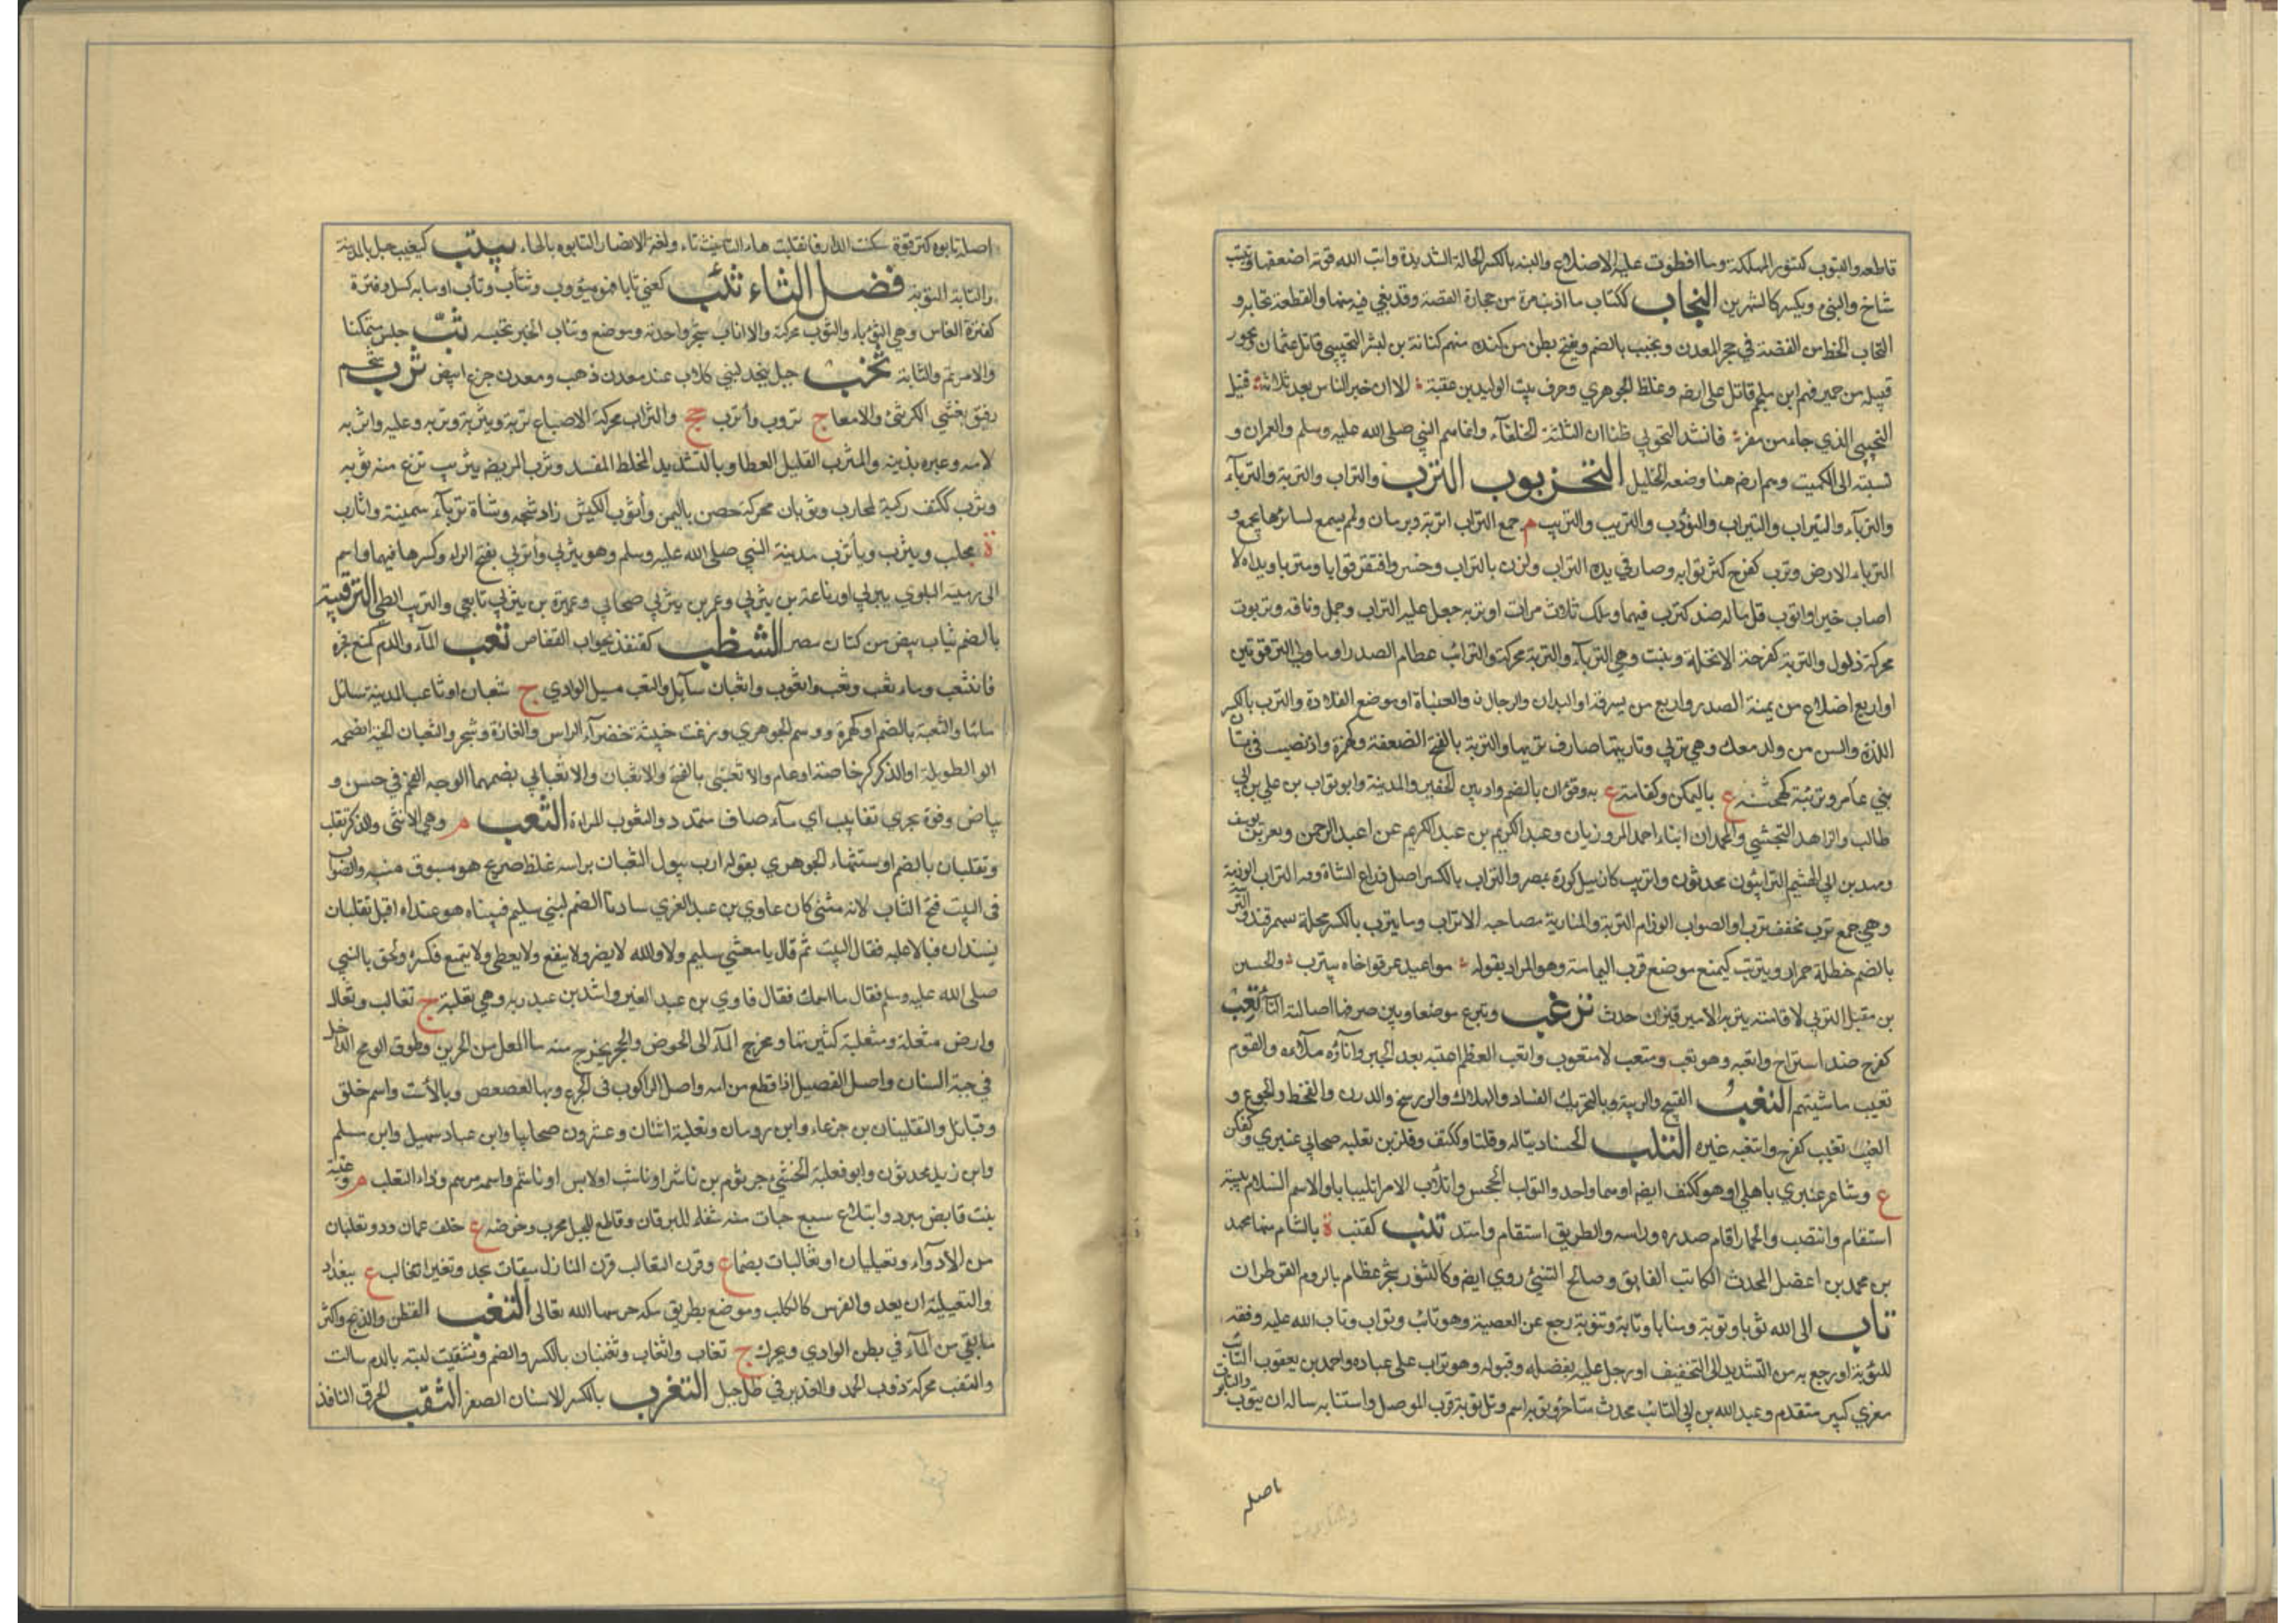 قاطعه والتبوب كتنور المهلكة وما انطوت عليه الاضلاع والتبة بالكسر الحالة الشديدة واتب الله قوته اضعفها وتبتب
شاخ والتبي ويكسر كالشهرين التجاب ككتاب ما اذيب مرة من حجارة الفضة وقد بقي فيه منها والقطعة تجابة و
التجاب الخط من الفضة في حجر المعدن وتجيب بالضم ويفتح بطن من كندة منهم كنانة بن بشر التجيبي قاتل عثمان وتجوب
قبيلة من حمير منهم ابن ملجم قاتل علي رض وغلط الجوهري وحرف بيت الوليد بن عقبة الا ان خير الناس بعد ثلاثة قتيل
التجيبي الذي جاء من مضر فانشد التجوبي ظنا ان الثلثة الخلفآء وانما هم النبي صلى الله عليه وسلم والعمران و
نسبته الى الكميت وهم ايضا هنا وضعه الخليل التخربوب الترب والتراب والتربة والتربآء
والتربآء والتيراب والتيراب والتورب والتريب والتريب م جمع التراب اتربة وتربان ولم يسمع لسائرها بجمع و
الترباء الارض وترب كفرح كثر ترابه وصار في يده التراب ولزق بالتراب وخسر وافتقر تربا ومتربا ويداه لا
اصاب خيرا واترب قل ماله ضد كترب فيهما وملك عبدا ملك ثلاث مرات وتربه جعل عليه التراب وجمل وناقة وتربوت
محركة ذلول والتربة كفرحة الانملة ونبت وهي التربآء والتربة محركة والترائب عظام الصدر او ما ولي الترقوتين
او اربع اضلاع من يمنة الصدر واربع من يسرته او اليدان والرجلان والعينان او موضع القلادة والترب بالكسر
اللدة والسن ومن ولد معك وهي تربي وتاربتها صارت تربها والتربة بالفتح الضعفة وكهمزة واد يصب في بستان
بني عامر وتربية كجهينة ع باليمن وكقامة ع به وتربان بالضم واد بين الحفير والمدينة وابو تراب بن علي بن ابي
طالب والزاهد النخشبي والمحمدان ابناء احمد المروزيان وعبد الكريم بن عبد الكريم بن عبد الرحمن ونصر بن يوسف
ومحمد بن ابي الهيثم الترابيون محدثون واتريب كازميل كورة بمصر والتراب بالكسر اصل ذراع الشاة ومنه التراب الوذمة
وهي جمع ترب مخفف ترب او الصواب الوذام التربة والمتاربة مصاحبة الاتراب وما يترب بالكسر محلة بسمرقند والترتب
بالضم حنطلة حمراء ويترب كيمنع موضع قرب اليمامة وهو المراد بقوله مواعيد عرقوب اخاه بيترب والحسين
بن مقبل التربي لاقامته بتربة الامير قيزان حدث ترعب وتبرع موضعان وبين صرفهما اصالة التاء تعب
كفرح ضد استراح واتعبه وهو تعب ومتعب لا متعوب واتعب العظم اعتبه بعد الجبر واناءه ملاءه والقوم
تعبت ماشيتهم التغب القبيح والريبة وبالتحريك الفساد والهلاك والوسخ والدرن والقحط والجوع و
العيب تغب كفرح واتغبه غيره التلب الخسار تبا له وتلبا وككتف وفلز بن ثعلبة صحابي عنبري وكفلز
ع وشاعر عنبري باهلي او هو ككتف ايضا او هما واحد والتولب الجحش واتلأب الامر اتلئبابا والاسم التلأبيبة
استقام وانتصب والحمار اقام صدره وراسه والطريق استقام وامتد تنب كقنب ة بالشام منها محمد
بن محمد بن اعقيل المحدث الكاتب الفايق وصالح التنبي روى ايضا وكالتنور شجر عظام بالروم القطران
تاب الى الله توبا وتوبة ومتابا وتابة وتتوبة رجع عن المعصية وهو تائب وتواب وتاب الله عليه وفقه
للتوبة او رجع به من التشديد الى التخفيف او رجع عليه بفضله وقبوله وهو تواب على عباده واحمد بن يعقوب التائب
مقري كبير متقدم وعبد الله بن ابي التائب محدث متاخر وتوبة اسم وتل توبة قرب الموصل واستتابه ساله ان يتوب والتابوت
اصله
اصله تابوه كترقوة سكنت الواو فانقلبت هاء التانيث تاء ولغة الانصار التابوه بالهاء يتب كيغيب جبل بالمدينة
والتابة التوبة فصل الثاء ثئب كعني ثابا فهو مثؤوب وتثأب وتثأب اصابه كسل وفترة
كفترة النعاس وهي الثؤباء والثأب محركة والاثأب شجر واحدته وموضع وتثأب الخبر تجسسه ثب جلس متمكنا
والامر تم والثابة ثخب جبل بنجد لبني كلاب عنده معدن ذهب ومعدن جزع ابيض ثرب شحم
رقيق يغشي الكرش والامعا ج ثروب واثرب جج والثراب محركة الاصابع ثربه ويثربه وثربه وعليه واثربه
لامه وعيره بذنبه والمثرب القليل العطا وبالتشديد المخلط المفسد وثرب المريض يثربه نزع عنه ثوبه
وثرب ككتف ركية لمحارب وثربان محركة حصن باليمن واثرب الكبش زاد شحمه وشاة ثربآء سمينة واثارب
ة بحلب ويثرب واثرب مدينة النبي صلى الله عليه وسلم وهو يثربي واثربي بفتح الراء وكسرها فيهما واسم
ابي رمثة البلوي يثربي او رفاعة بن يثربي وعمرو بن يثربي صحابي وعميرة بن يثربي تابعي والتثريب الطي الثرقبية
بالضم ثياب بيض من كتان مصر الثنظب كقنفذ جواب القفاص ثعب المآء والدم كمنع فجره
فانثعب وماء ثعب وثعب واثعوب واثعبان سآيل والثعب مسيل الوادي ج ثعبان ومثاعب المدينة مسائل
مائها والثعبة بالضم او كهمزة ووهم الجوهري وزغة خبيثة خضرآء الراس والفارة وشجر والثعبان الحية الضخمة
الطويلة او الذكر خاصة او عام والاثعبي بالفتح والاثعبان والاثعباني بضمهما الوجه الفخم في حسن و
بياض وفوه يجري ثعابيب اي مآء صاف متمدد والثعوب المرة الثعلب م وهي الانثى والذكر ثعلب
وثعلبان بالضم واستشهاد الجوهري بقوله ارب يبول الثعلبان براسه غلط صريح وهو مسبوق فيه والصواب
في البيت فتح الثاء لانه مثنى كان غاوي بن عبد العزى سادنا لصنم لبني سليم فبينا هو عنده اذ اقبل ثعلبان
يشتدان فبالا عليه فقال البيت ثم قال يا معشر سليم لا والله لا يضر ولا ينفع ولا يعطي ولا يمنع فكسره ولحق بالنبي
صلى الله عليه وسلم فقال ما اسمك فقال غاوي بن عبد العزى فقال انت راشد بن عبد ربه وهي ثعلبة ج ثعالب وثعال
وارض مثعلة ومثعلبة كثيرتها ومخرج المآء الى الحوض والجحر يخرج منه مآء المطر من الجرين وطرف الرمح الداخل
في جبة السنان واصل الفسيل اذا قطع من امه واصل الراكوب في الجذع وبها العصعص وبالأست واسم خلق
وقبائل والثعلبتان بن جدعاء وابن رومان وثعلبة اثنان وعشرون صحابيا وابن عباد سهيل وابن مسلم
وابن يزيد محدثون وابو ثعلبة الخشني جرثوم بن ناشر او ناشب او لابس او ناشم او اسمه جرهم وداء الثعلب م وعنبه
نبت قابض مبرد وابتلاع سبع حبات منه شفاء لليرقان وقاطع للحبل مجرب وحوضه ع خلف عمان وذو ثعلبان
من الأذواء وثعيلبات او ثعالبات بضمها ع وقرن الثعالب قرن المنازل ميقات نجد ودير الثعالب ع ببغداد
والثعلبية ان يعدو الفرس كالكلب وموضع بطريق مكة حرسها الله تعالى الثغب الطعن والذبح واكثر
ما بقي من المآء في بطن الوادي ويحرك ج ثغاب واثغاب وثغبان بالكسر والضم وتثغبت لثته بالدم سالت
والثغب محركة ذوب الجمد والغدير في ظل جبل الثغرب بالكسر الاسنان الصفر الثقب الخرق النافذ